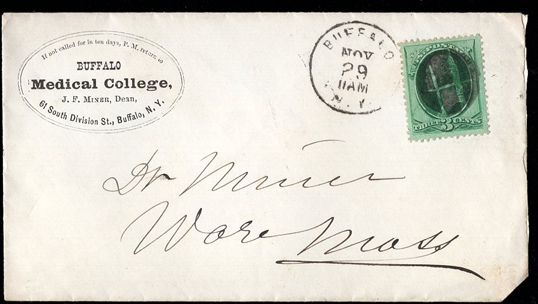 If not called for in ten days, P. M. return to
BUFFALO
Medical College,
J. F. MINER, Dean,
61 South Division St., Buffalo, N. Y.
BUFFALO
NOV
29
11AM
N.Y.
THREE 3 CENTS
Dr Miner
Ware Mass